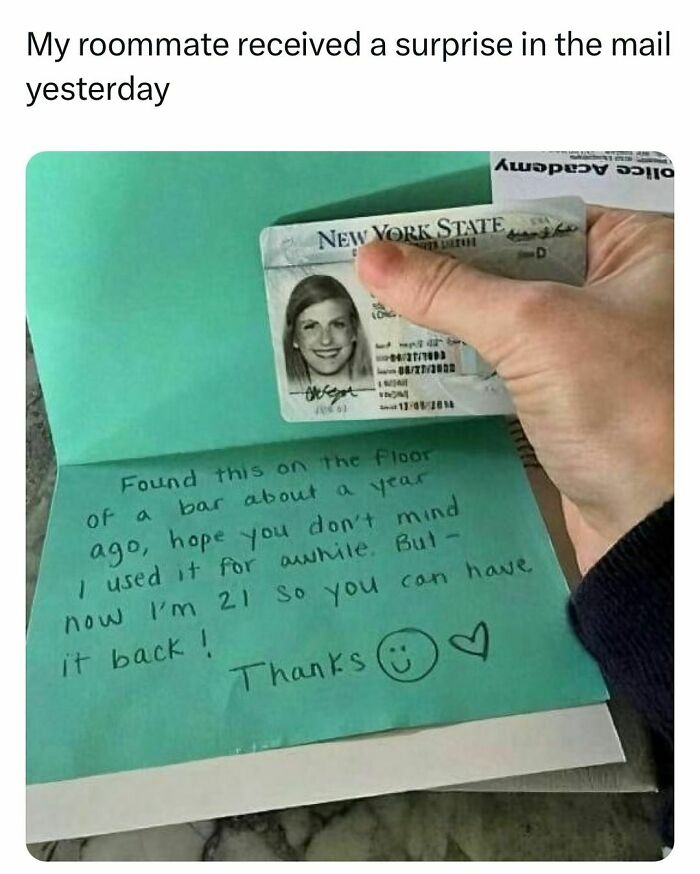 My roommate received a surprise in the mail
yesterday
olice Academy
NEW YORK STATE
D
Found this on the floor
of a bar about a year
ago, hope you don't mind
I used it for awhile. But -
now I'm 21 so you can have
it back!
Thanks